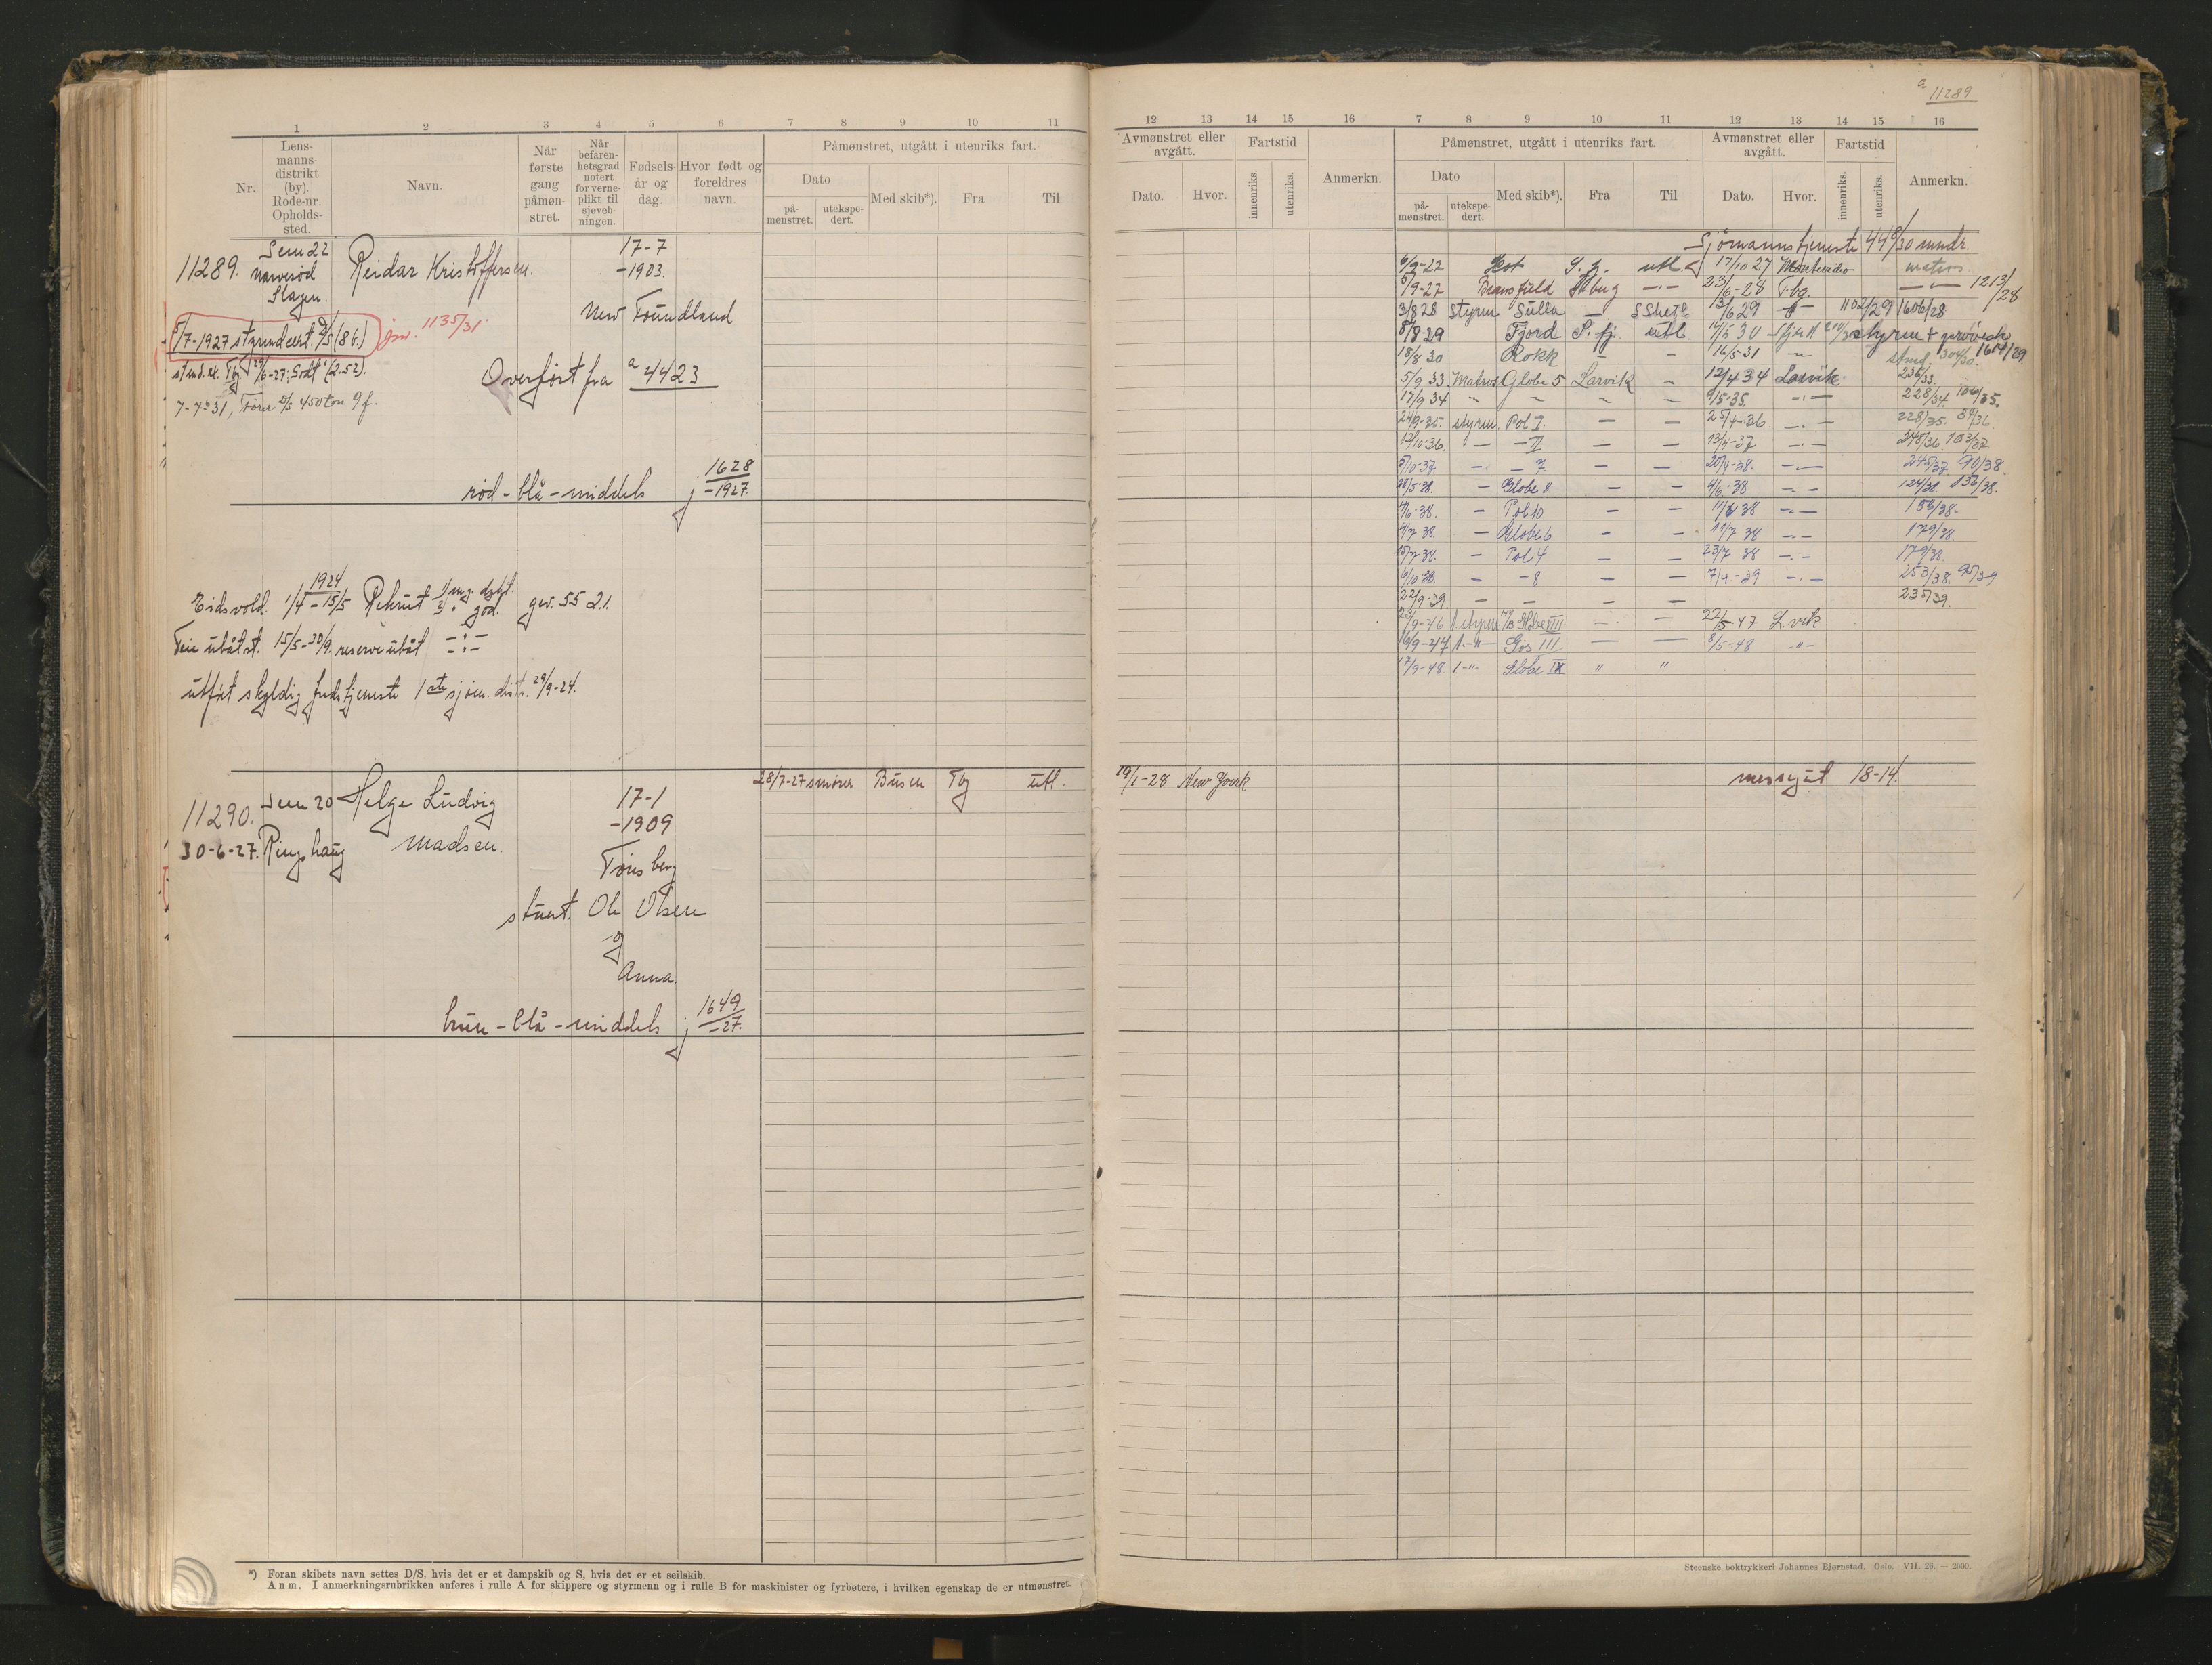 a 11289
1 2 3 4 5 6 7 8 9 10 11
Nr.
Lens-
manns-
distrikt
(by).
Rode-nr.
Opholds-
sted.
Navn.
Når
første
gang
påmøn-
stret.
Når
befaren-
hetsgrad
notert
for verne-
plikt til
sjøveb-
ningen.
Fødsels-
år og
dag.
Hvor født og
foreldres
navn.
Påmønstret, utgått i utenriks fart.
Dato
på-
mønstret.
utekspe-
dert.
Med skib*).
Fra
Til
11289.
Sem 22
Slagen.
Reidar Kristoffersen.
17-7
-1903.
New Foundland
5/7-1927 styrmdcert. D/S (86.)
1135/31
Overført fra a 4423
7-7-31, Fører D/S 450 ton 9 f.
rød - blå - middels j 1628
-1927.
1924
Eidsvold. 1/4 - 15/5 Rekrut
god. gev. 5521.
15/5-30/9. reserve ubåt
utført skyldig 1ste sjøm. distr. 29/9-24.
11290.
Sem 20
Helge Ludvig
Madsen.
30-6-27. Ringshaug
17-1
-1909
Tønsberg
stuert. Ole Olsen
og
Anna.
brun - blå - middels j 1649
-27.
28/7-27 smører Busen Tbg utl.
*) Foran skibets navn settes D/S, hvis det er et dampskib og S, hvis det er et seilskib.
Anm. I anmerkningsrubrikken anføres i rulle A for skippere og styrmenn og i rulle B for maskinister og fyrbøtere, i hvilken egenskap de er utmønstret.
12 13 14 15 16 7 8 9 10 11 12 13 14 15 16
Avmønstret eller
avgått.
Dato.
Hvor.
Fartstid
innenriks.
utenriks.
Anmerkn.
Påmønstret, utgått i utenriks fart.
Dato
på-
mønstret.
utekspe-
dert.
Med skib*).
Fra
Til
Avmønstret eller
avgått.
Dato.
Hvor.
Fartstid
innenriks.
utenriks.
Anmerkn.
Sjømannstjeneste 44 8/30 mndr.
17/10 27 Montevideo matros
5/9-27 Bransfield 23/6-28 Tbg. 1213/28
3/8 28 styrm Sulla 13/6 29 1102/29 1606/28
8/8 29 Fjord S. fj. utl.
18/8 30 Rokk 16/5-31
5/9 33. Matros Globe 5 Larvik - 12/4 34 Larvik
17/9 34 9/5-35. 228/34. 106/35.
24/9-35. styrm. Pol I. — — 25/4-36. 228/35. 84/36.
12/10-36. — — II — — 13/4-37 248/36. 103/37.
5/10-37 — — 7 — — 20/4-38. 245/37 90/38.
28/5-38. — Globe 8 — — 4/6-38 124/38. 132/38.
4/6-38. — Pol 10 — — 11/6 38 156/38.
4/7 38. — Globe 6 - - 11/7 38 179/38.
15/7-38. — Pol 4 — — 23/7 38 179/38.
6/10-38. — -8 — — 7/4-39 253/38. 95/39
22/9-39. — — — — 235/39.
23/9-46 1 styrm Globe VIII — — 22/5 47 L.vik
16/9-47 1.-"- Gos III — — 8/5-48 -"-
17/9-48 1-". Globe IX " "
19/1-28 New York messegut 18-14.
Steenske boktrykkeri Johannes Bjørnstad, Oslo. VII. 26. — 2000.